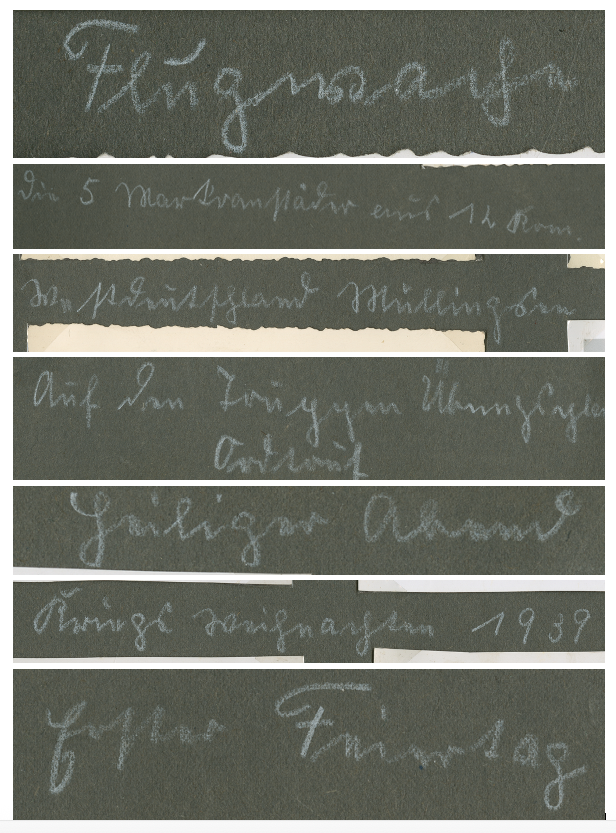 Flugwache
Die 5 Markranstäder aus 12 Kom.
Westdeutschland Müllingsen
Auf den Truppen Übungspla
Ordruf
Heiliger Abend
Kriegs Weihnachten 1939
Erster Feiertag